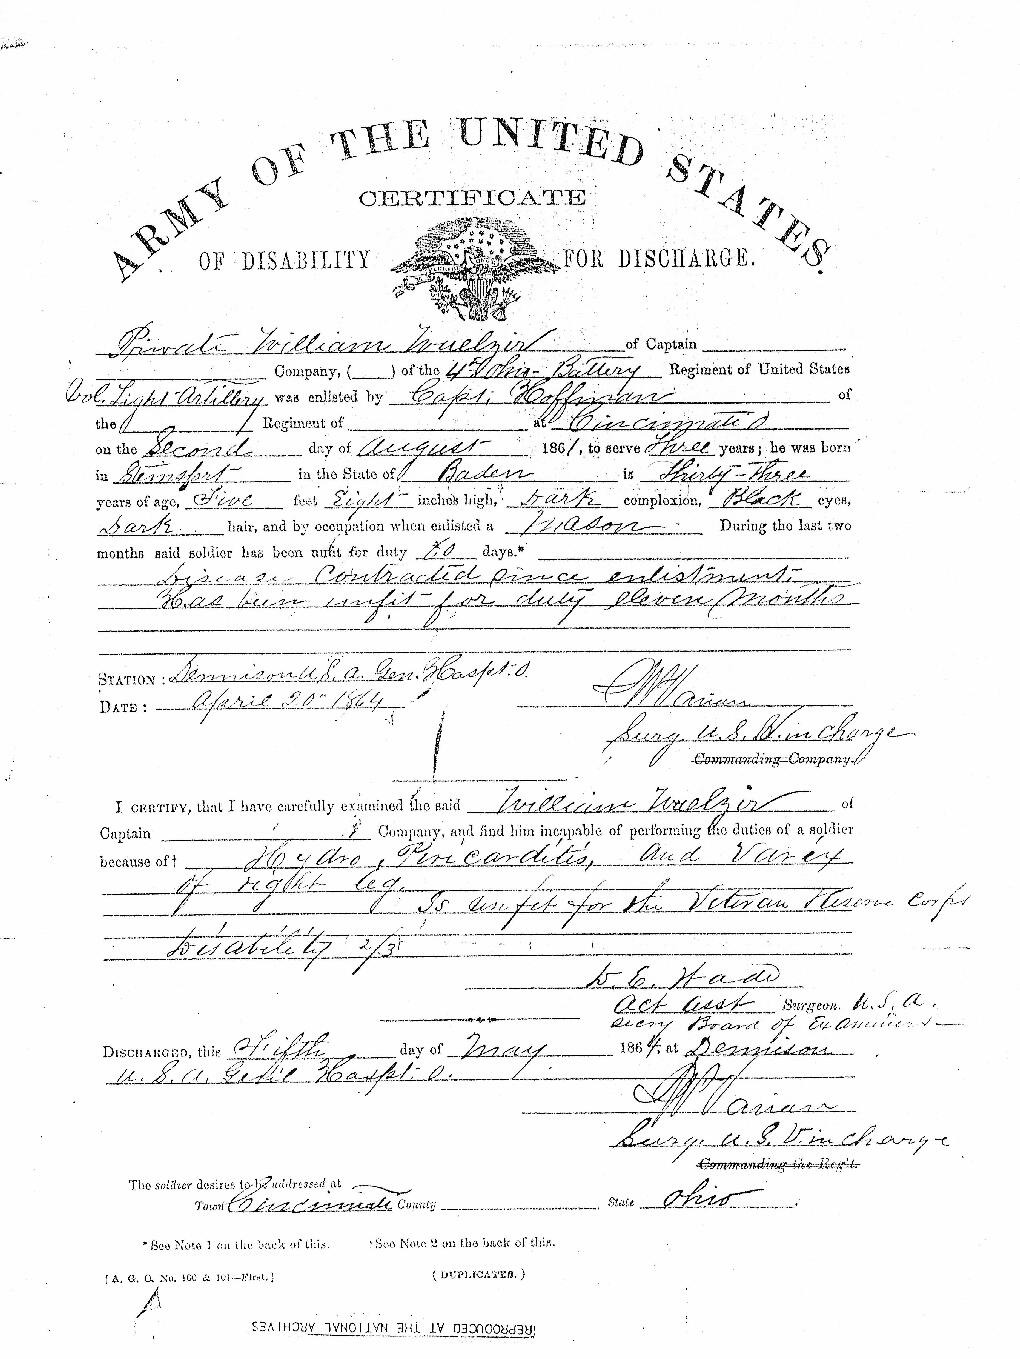 ARMY OF THE UNITED STATES.
CERTIFICATE
OF DISABILITY FOR DISCHARGE.
Private William Wuelzer of Captain
Company, ( ) of the 4th Ohio Battery Regiment of United States
Vol. Light Artillery was enlisted by Capt. Hoffman of
the Regiment of at Cincinnati O
on the Second day of August 1861, to serve Three years; he was born
in in the State of Baden is Thirty-Three
years of age, Five feet Eight inches high, Dark complexion, Black eyes,
Dark hair, and by occupation when enlisted a Mason. During the last two
months said soldier has been unfit for duty 60 days.*
Disease Contracted since enlistment.
Has been unfit for duty eleven months
STATION: Dennison U.S.A. Gen. Hospt. O.
DATE: April 20th 1864
Varian
Surg. U.S.V. in charge
Commanding Company.
I CERTIFY, that I have carefully examined the said William Wuelzer of
Captain Company, and find him incapable of performing the duties of a soldier
because of† Hydro, Pericarditis, and Varix
of right leg.
Is unfit for the Veteran Reserve Corps
Disability 2/3
D. E. Wade
Act Asst Surgeon. U.S.A.
Secry Board of Examiners
DISCHARGED, this Fifth day of May 1864, at Dennison
U.S.A. Genl Hospt. O.
Varian
Surg. U.S.V. in charge
Commanding the Reg't.
The soldier desires to be addressed at
Town Cincinnati County State Ohio
*See Note 1 on the back of this. †See Note 2 on the back of this.
[A. G. O. No. 100 & 101—First.] (DUPLICATES.)
REPRODUCED AT THE NATIONAL ARCHIVES